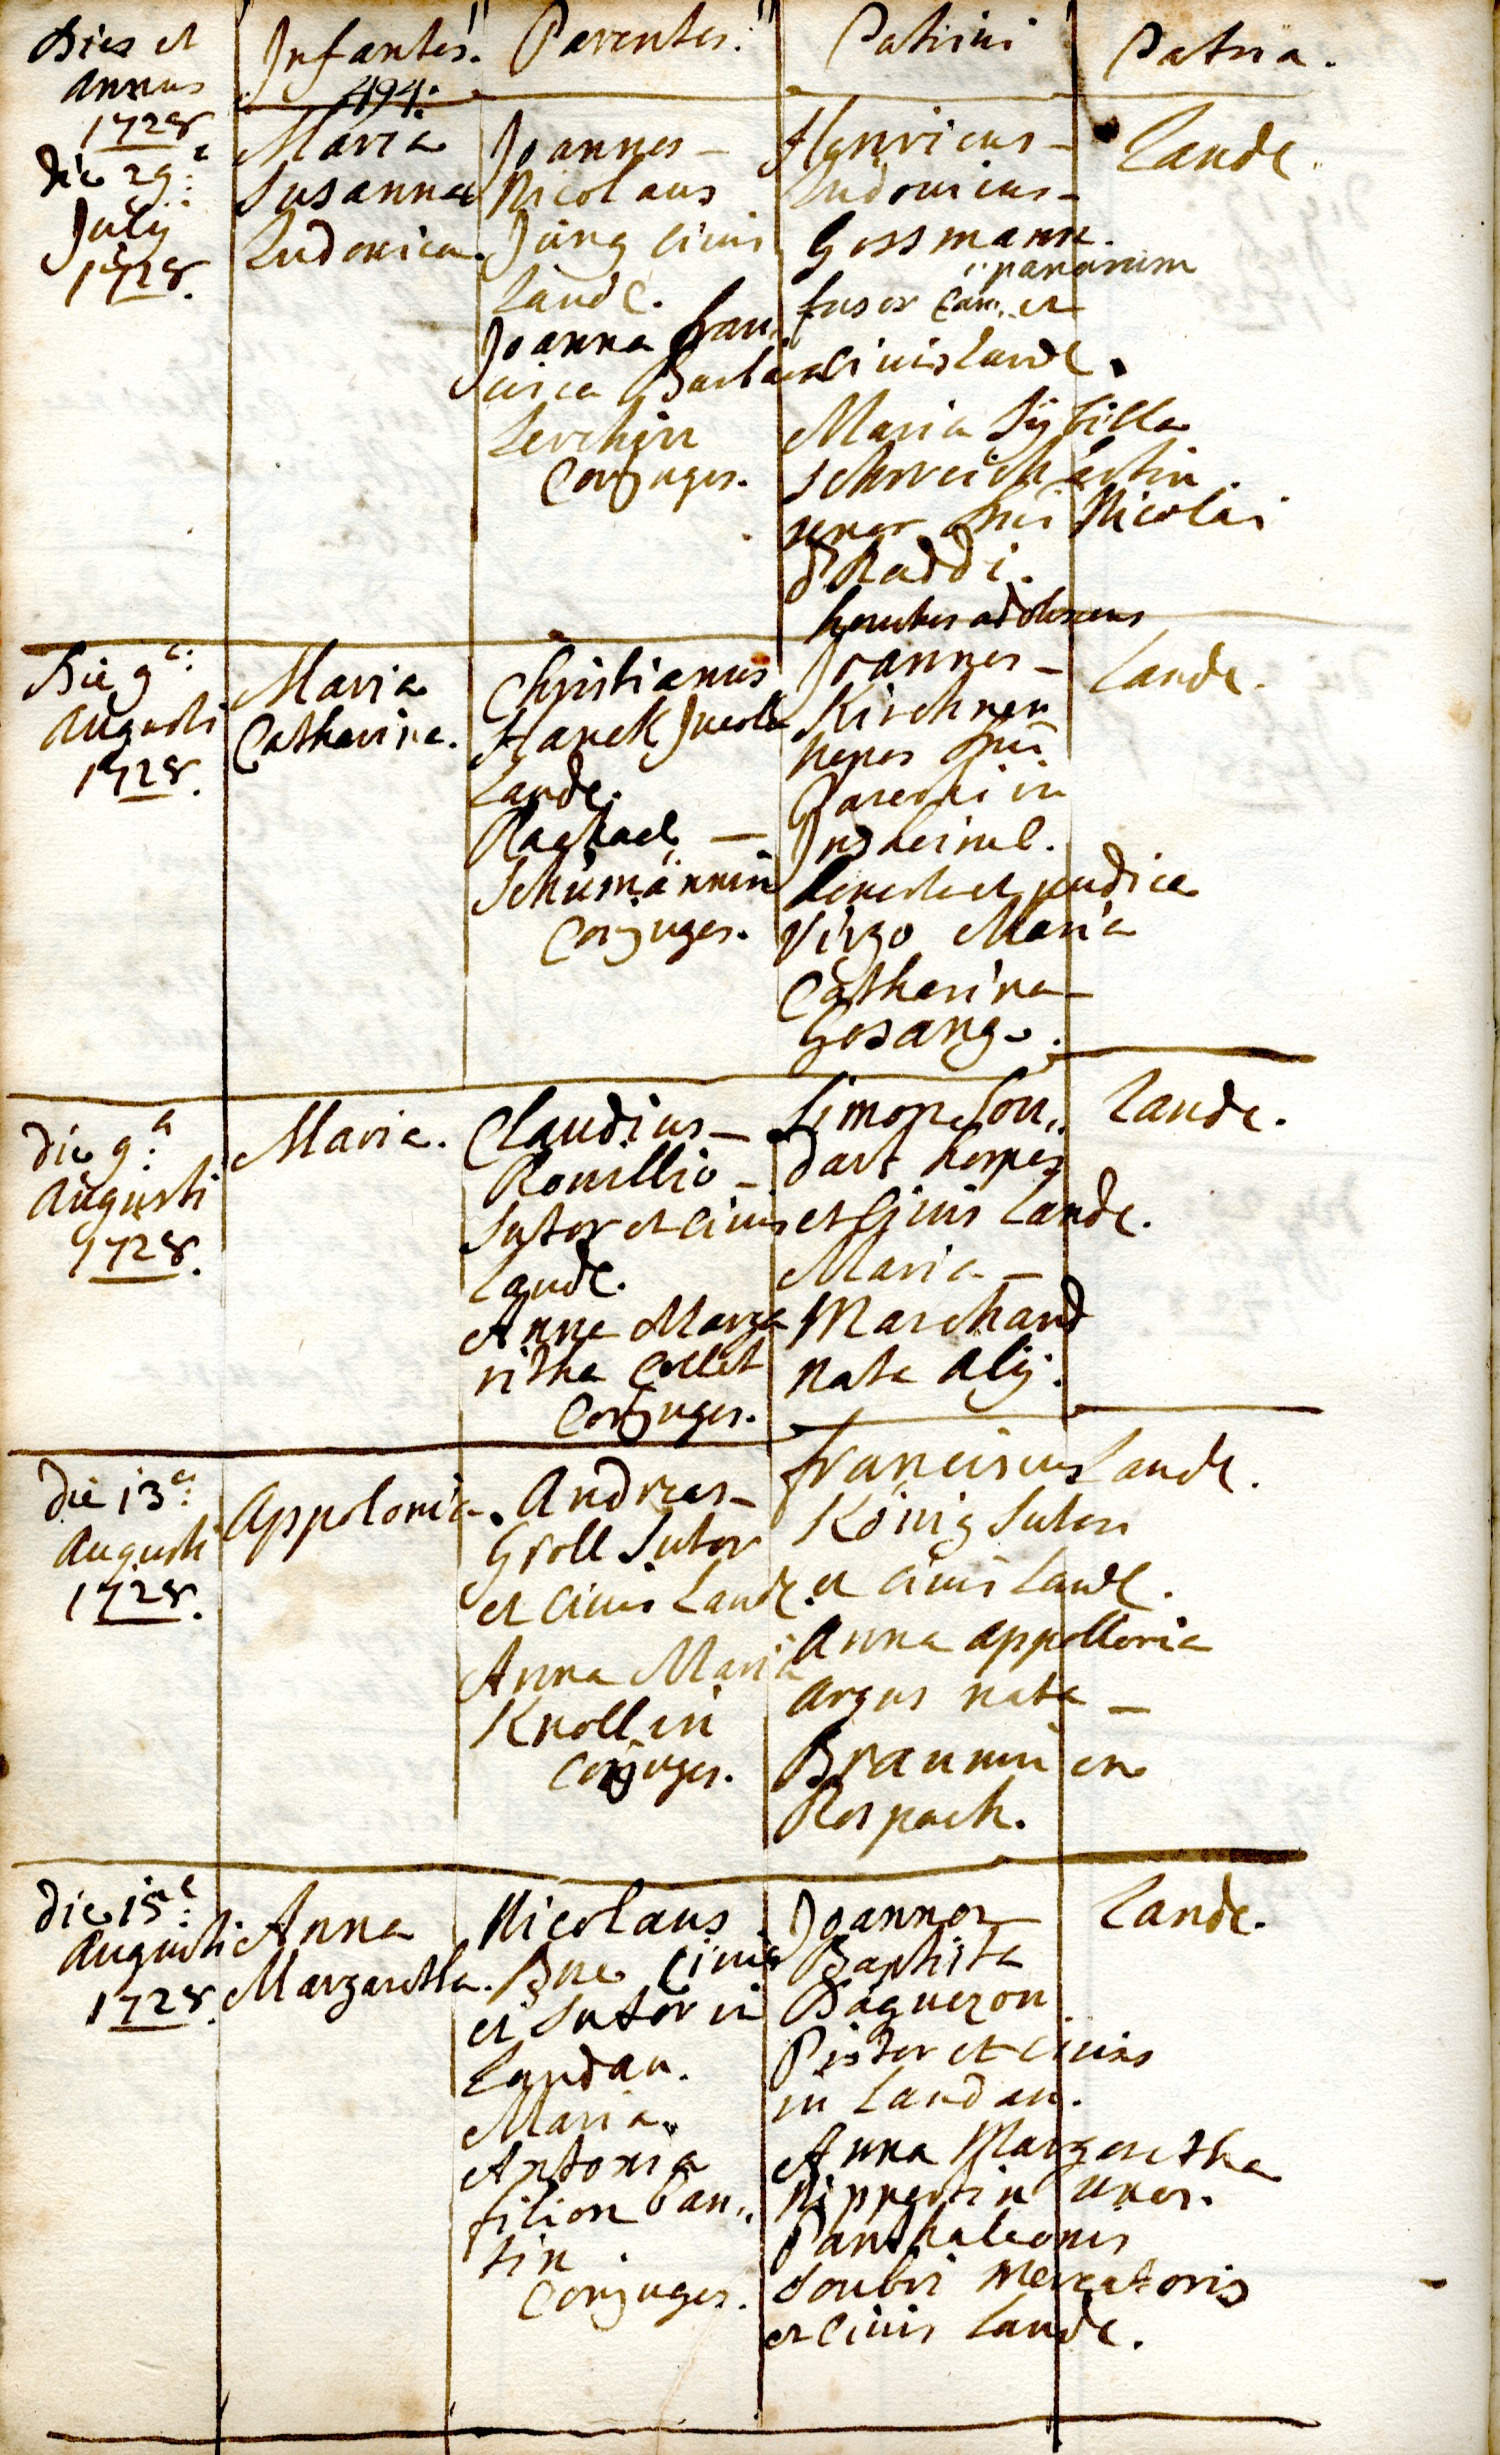 Dies et
annus
1728
Infantes.
494.
Parentes.
Patrini
Patria.
die 29.a
July
1728.
Maria
Susanna
Ludovica.
Joannes -
Nicolaus
Jüng civis
Landd.
Joanna Fran,,
cisca Barbara
Lerchin
Conjuges.
Henricus -
Ludovicus -
Gossmann.
panarum
fusor cam,, et
civis Landd.
Maria Sÿbilla
uxor Dni Nicolai
Raddi.
Landd.
Die 9.a
Augusti
1728.
Maria
Catharina.
Christianus
Hanck Incola
Landd.
Rachael -
Schümännin
Conjuges.
honestus adolescens
Joannes -
Kirchner
nepos Dni
Parochi in
Insheim.
honesta et pudica
Virgo Maria
Catharina -
Gosang.
Landd.
die 9.a
Augusti
1728.
Maria.
Claudius -
Rouillio -
Sutor et civis
Landd.
Anna Marga
ritha Collet
Conjuges.
Simon Son,,
dart hospes
et Civis Landd.
Maria -
Marchand
nata Alij.
Landd.
die 13.a
Augusti
1728.
Appolonia.
Andreas -
Groll Sutor
et civis Landd.
Anna Maria
Knollin
Conjuges.
Franciscus
König Sutor
et civis Landd.
Anna Appollonia
Argus nata -
Braunin ex
Rospach.
Landd.
die 15.a
Augusti
1728.
Anna
Margaretha.
Nicolaus
Bue Civis
et Sutor in
Landau.
Maria
Antonia
filion Pan,,
tin.
Conjuges.
Joannes -
Baptista
Bagueron
Pistor et civis
in Landau.
Anna Margaretha
Nippertin uxor.
Panthaleonis
Soubri Mercatoris
et civis Landd.
Landd.